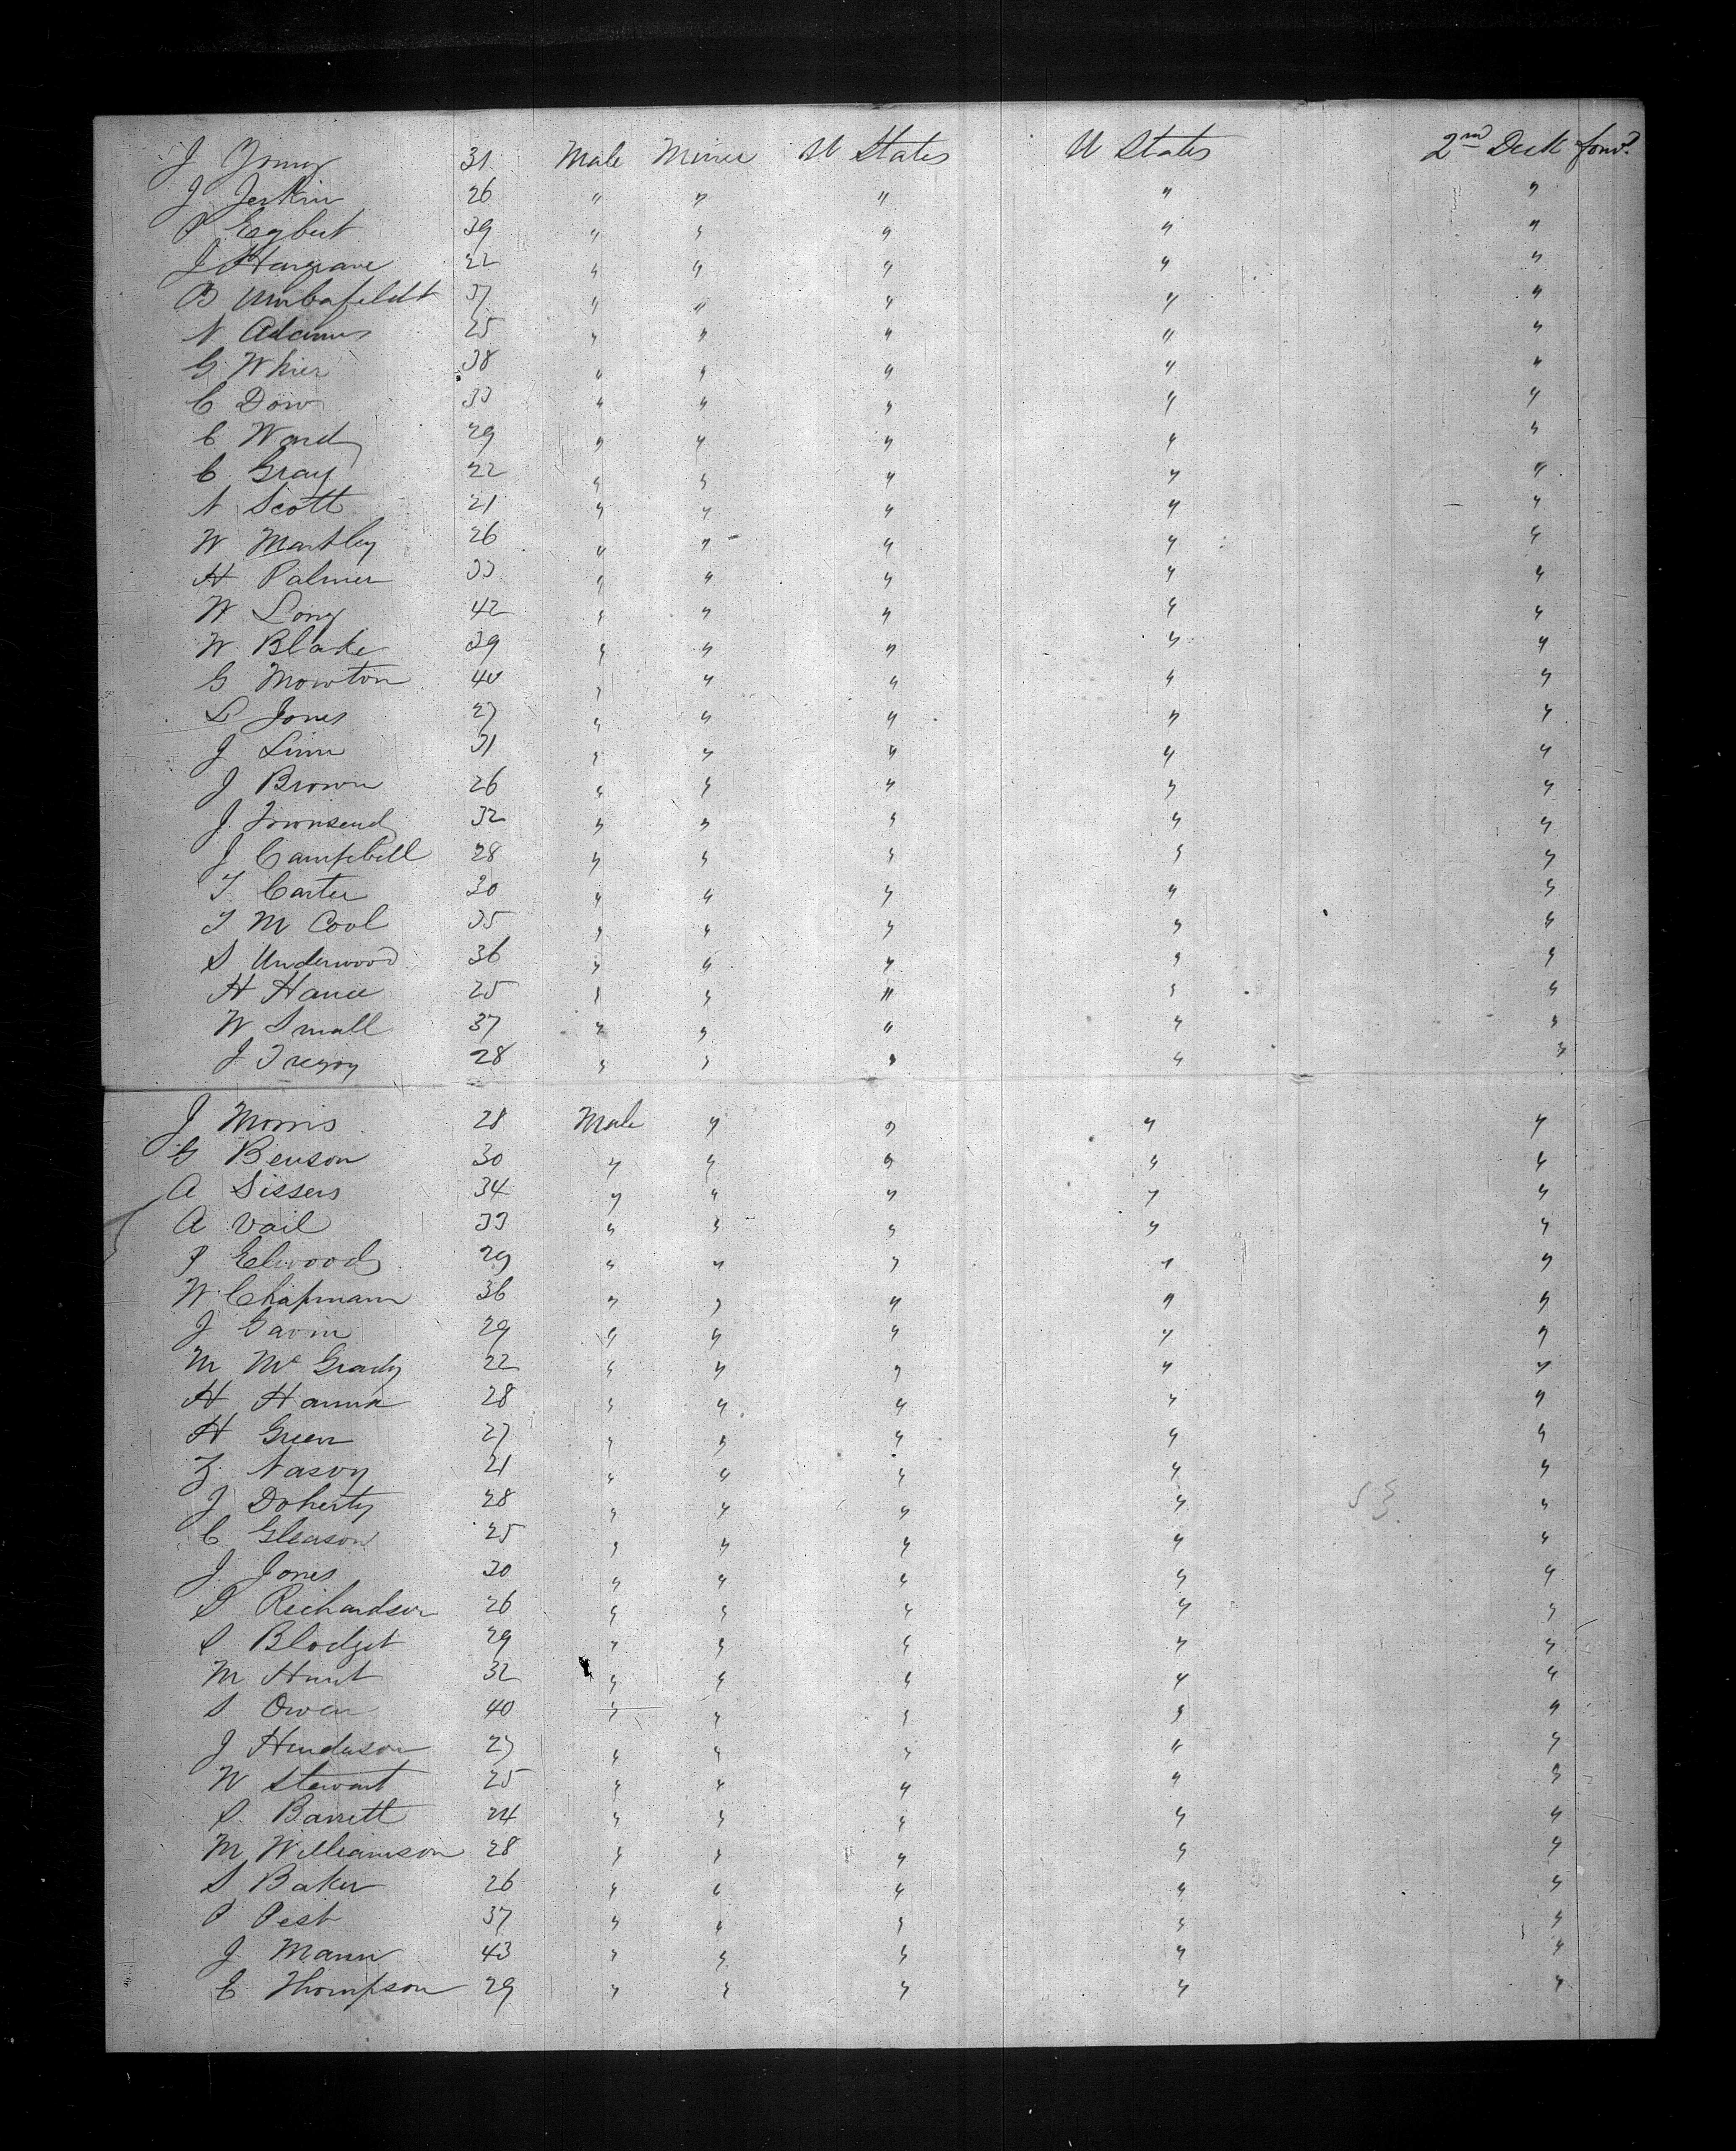 J Young 31 Male Miner U States U States 2nd Deck forwd
J Jerkin 26 " " " " "
P Egbert 39 " " " " "
J Hargrave 22 " " " " "
B 37 " " " " "
N Adams 25 " " " " "
G Whier 38 " " " " "
C Dow 33 " " " " "
C Ward 29 " " " " "
C Gray 22 " " " " "
N Scott 21 " " " " "
W Martley 26 " " " " "
H Palmer 33 " " " " "
W Long 42 " " " " "
W Blake 39 " " " " "
G Mowton 40 " " " " "
L Jones 27 " " " " "
J Linn 31 " " " " "
J Brown 26 " " " " "
J. Townsend 32 " " " " "
J Campbell 28 " " " " "
T. Carter 30 " " " " "
T M Cool 35 " " " " "
S Underwood 36 " " " " "
H Hance 25 " " " " "
W Small 37 " " " " "
J Tregoy 28 " " " " "
J Morris 28 Male " " " "
G Benson 30 " " " " "
A Sissers 34 " " " " "
A Vail 33 " " " " "
P Elwood 29 " " " " "
W Chapmann 36 " " " " "
J Gavin 29 " " " " "
M Mc Grady 22 " " " " "
H Hanna 28 " " " " "
H Green 27 " " " " "
Z. Nasoy 21 " " " " "
J Doherty 28 " " " " "
C Gleason 25 " " " " "
J. Jones 30 " " " " "
S Richardson 26 " " " " "
S Blodget 29 " " " " "
M Hunt 32 " " " " "
S Owen 40 " " " " "
J Henderson 27 " " " " "
W Stewart 25 " " " " "
S. Barrett 24 " " " " "
M Williamson 28 " " " " "
S Baker 26 " " " " "
P Pest 37 " " " " "
J Mann 43 " " " " "
E Thompson 29 " " " " "